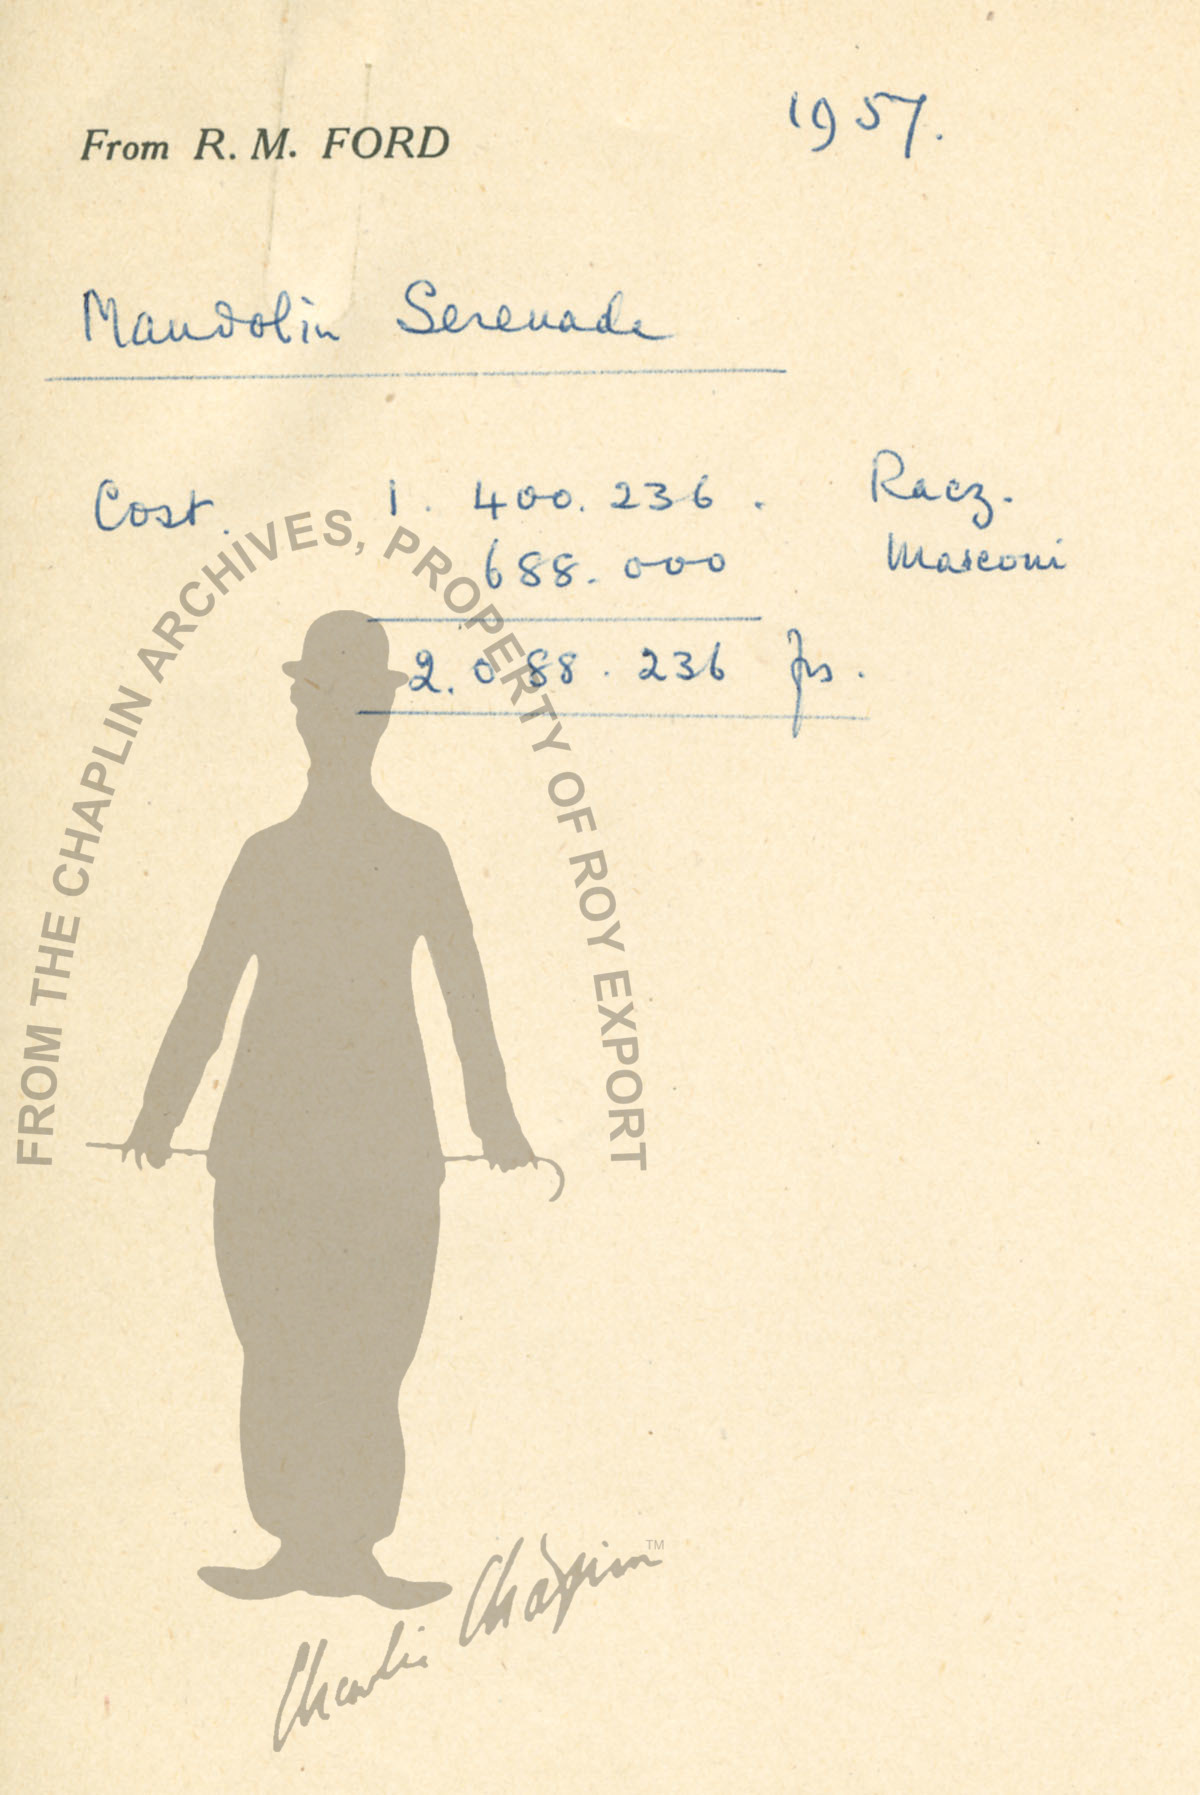 From R. M. FORD
1957.
Mandolin Serenade
Cost. 1. 400. 236. Racz.
688. 000 Marconi
2. 088. 236 frs.
FROM THE CHAPLIN ARCHIVES, PROPERTY OF ROY EXPORT
Charlie Chaplin TM